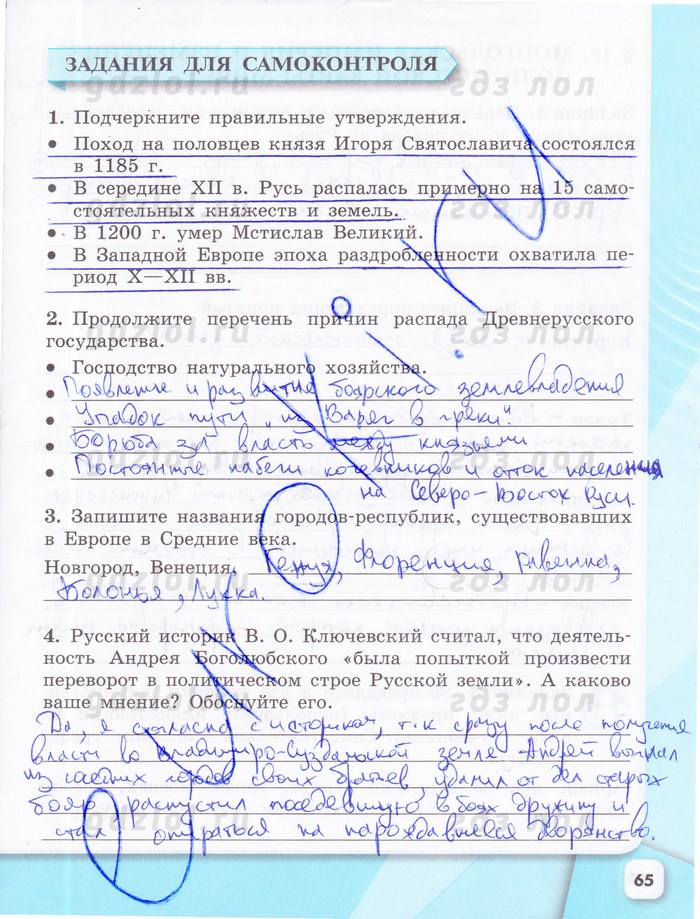 ЗАДАНИЯ ДЛЯ САМОКОНТРОЛЯ
gdzlol.ru гдз лол
1. Подчеркните правильные утверждения.
• Поход на половцев князя Игоря Святославича состоялся
в 1185 г.
• В середине XII в. Русь распалась примерно на 15 само-
стоятельных княжеств и земель.
• В 1200 г. умер Мстислав Великий.
• В Западной Европе эпоха раздробленности охватила пе-
риод X—XII вв.
2. Продолжите перечень причин распада Древнерусского
государства.
• Господство натурального хозяйства.
• Появление и развитие боярского землевладения
• Упадок пути "из Варяг в греки".
• Борьба за власть князьями
• Постоянные набеги кочевников и отток населения
на Северо-Восток Руси.
3. Запишите названия городов-республик, существовавших
в Европе в Средние века.
Новгород, Венеция, Генуя, Флоренция, Равенна,
Болонья, Лукка.
4. Русский историк В. О. Ключевский считал, что деятель-
ность Андрея Боголюбского «была попыткой произвести
переворот в политическом строе Русской земли». А каково
ваше мнение? Обоснуйте его.
Да, я согласна с историком, т.к сразу после получения
власти во Владимиро-Суздальской земле Андрей выгнал
из городов своих братьев, удалил от дел старых
бояр, распустил поседевшую в боях дружину и
стал опираться на нарождавшееся дворянство.
65